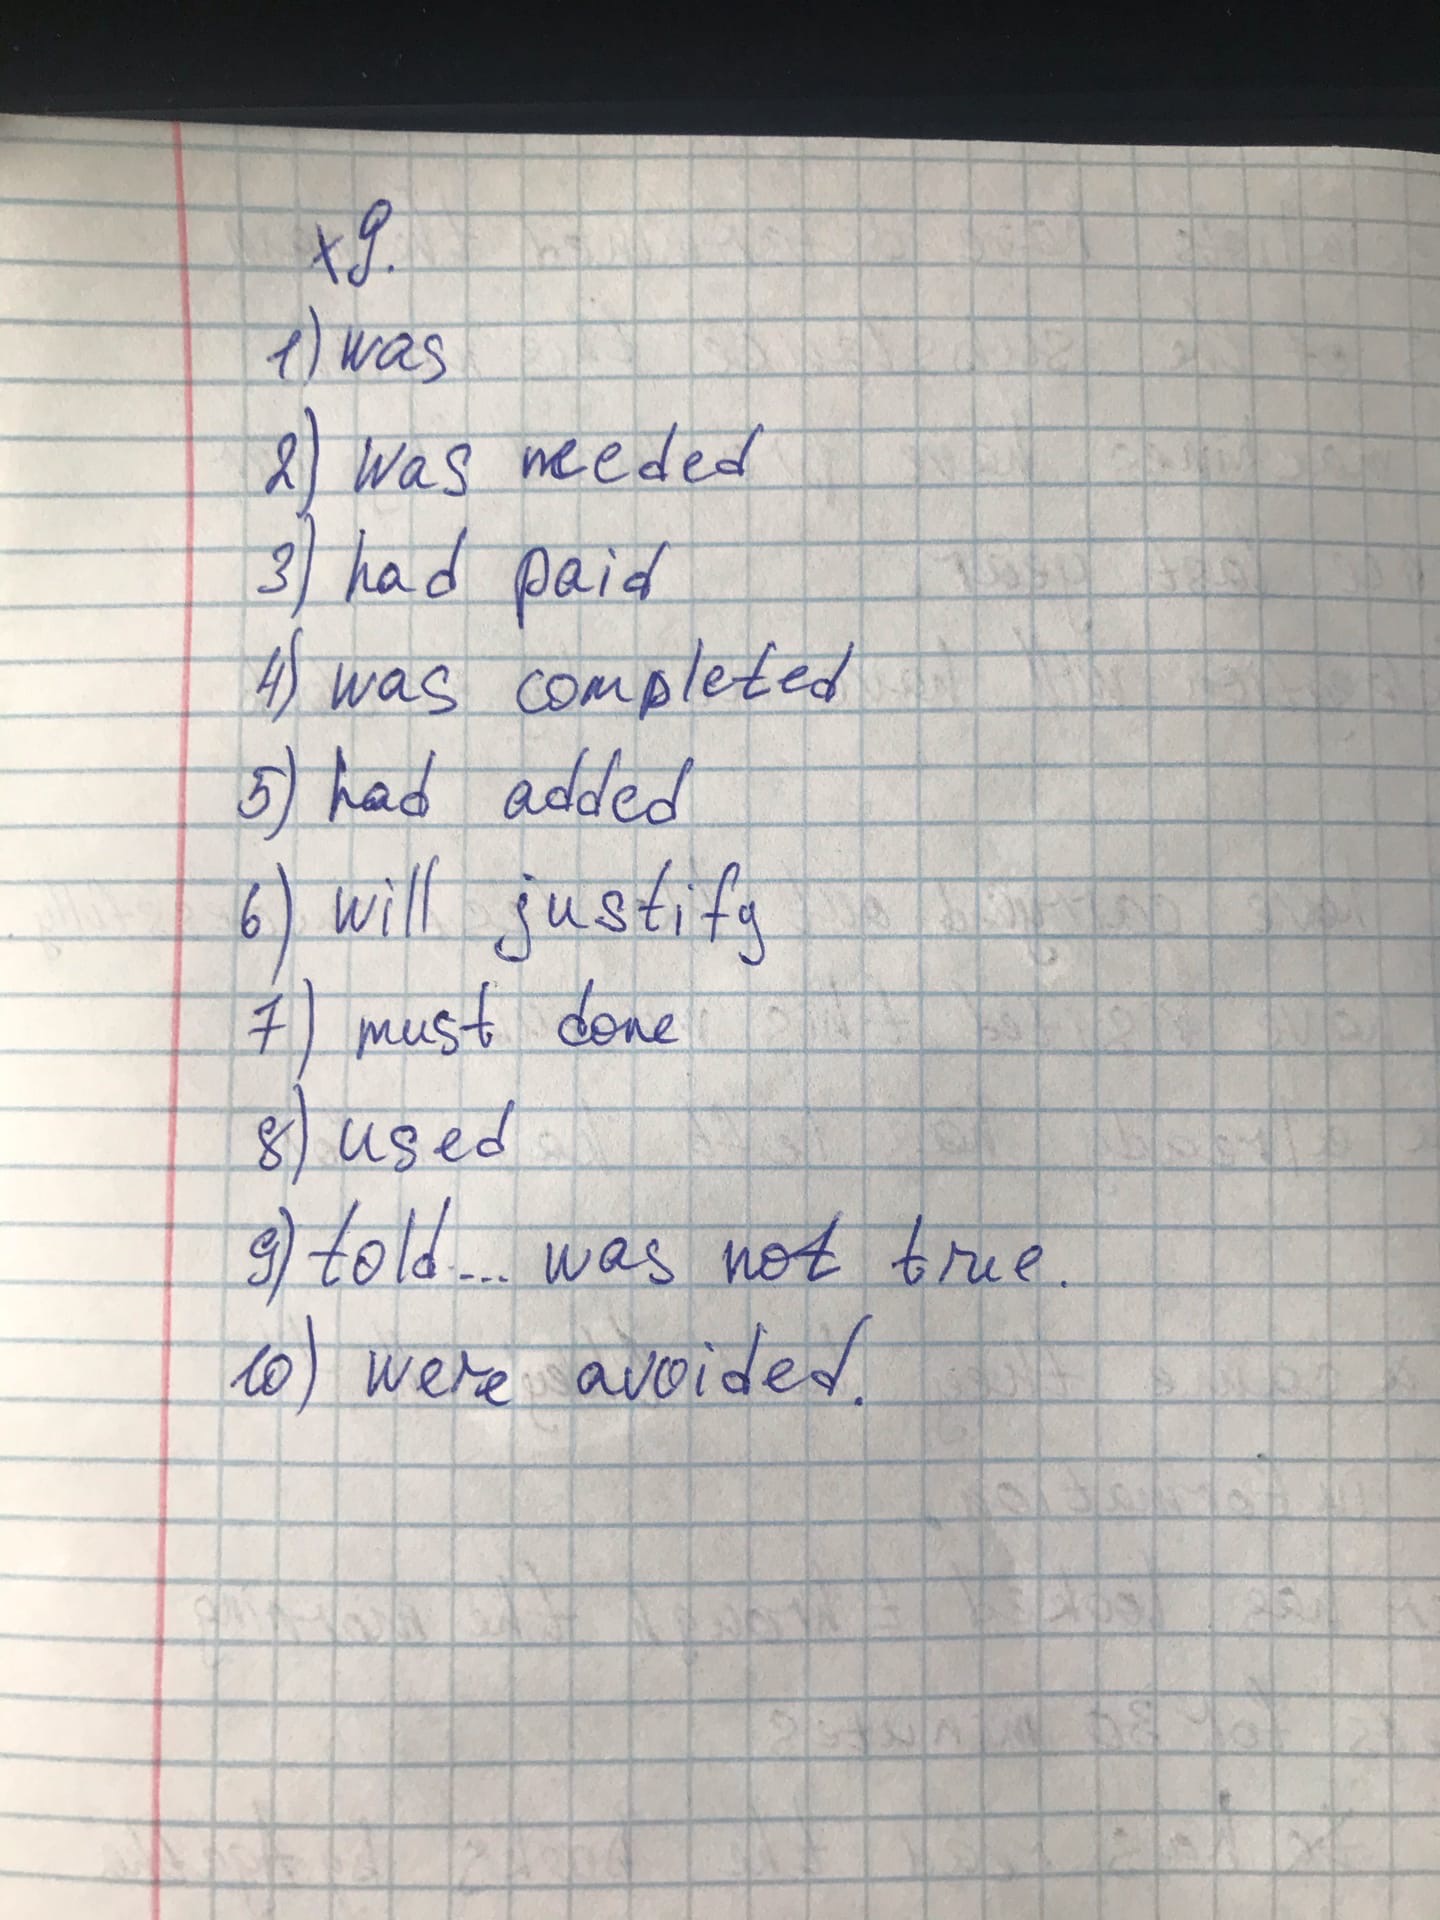 x9.
1) was
2) was needed
3) had paid
4) was completed
5) had added
6) will justify
7) must done
8) used
9) told... was not true.
10) were avoided.